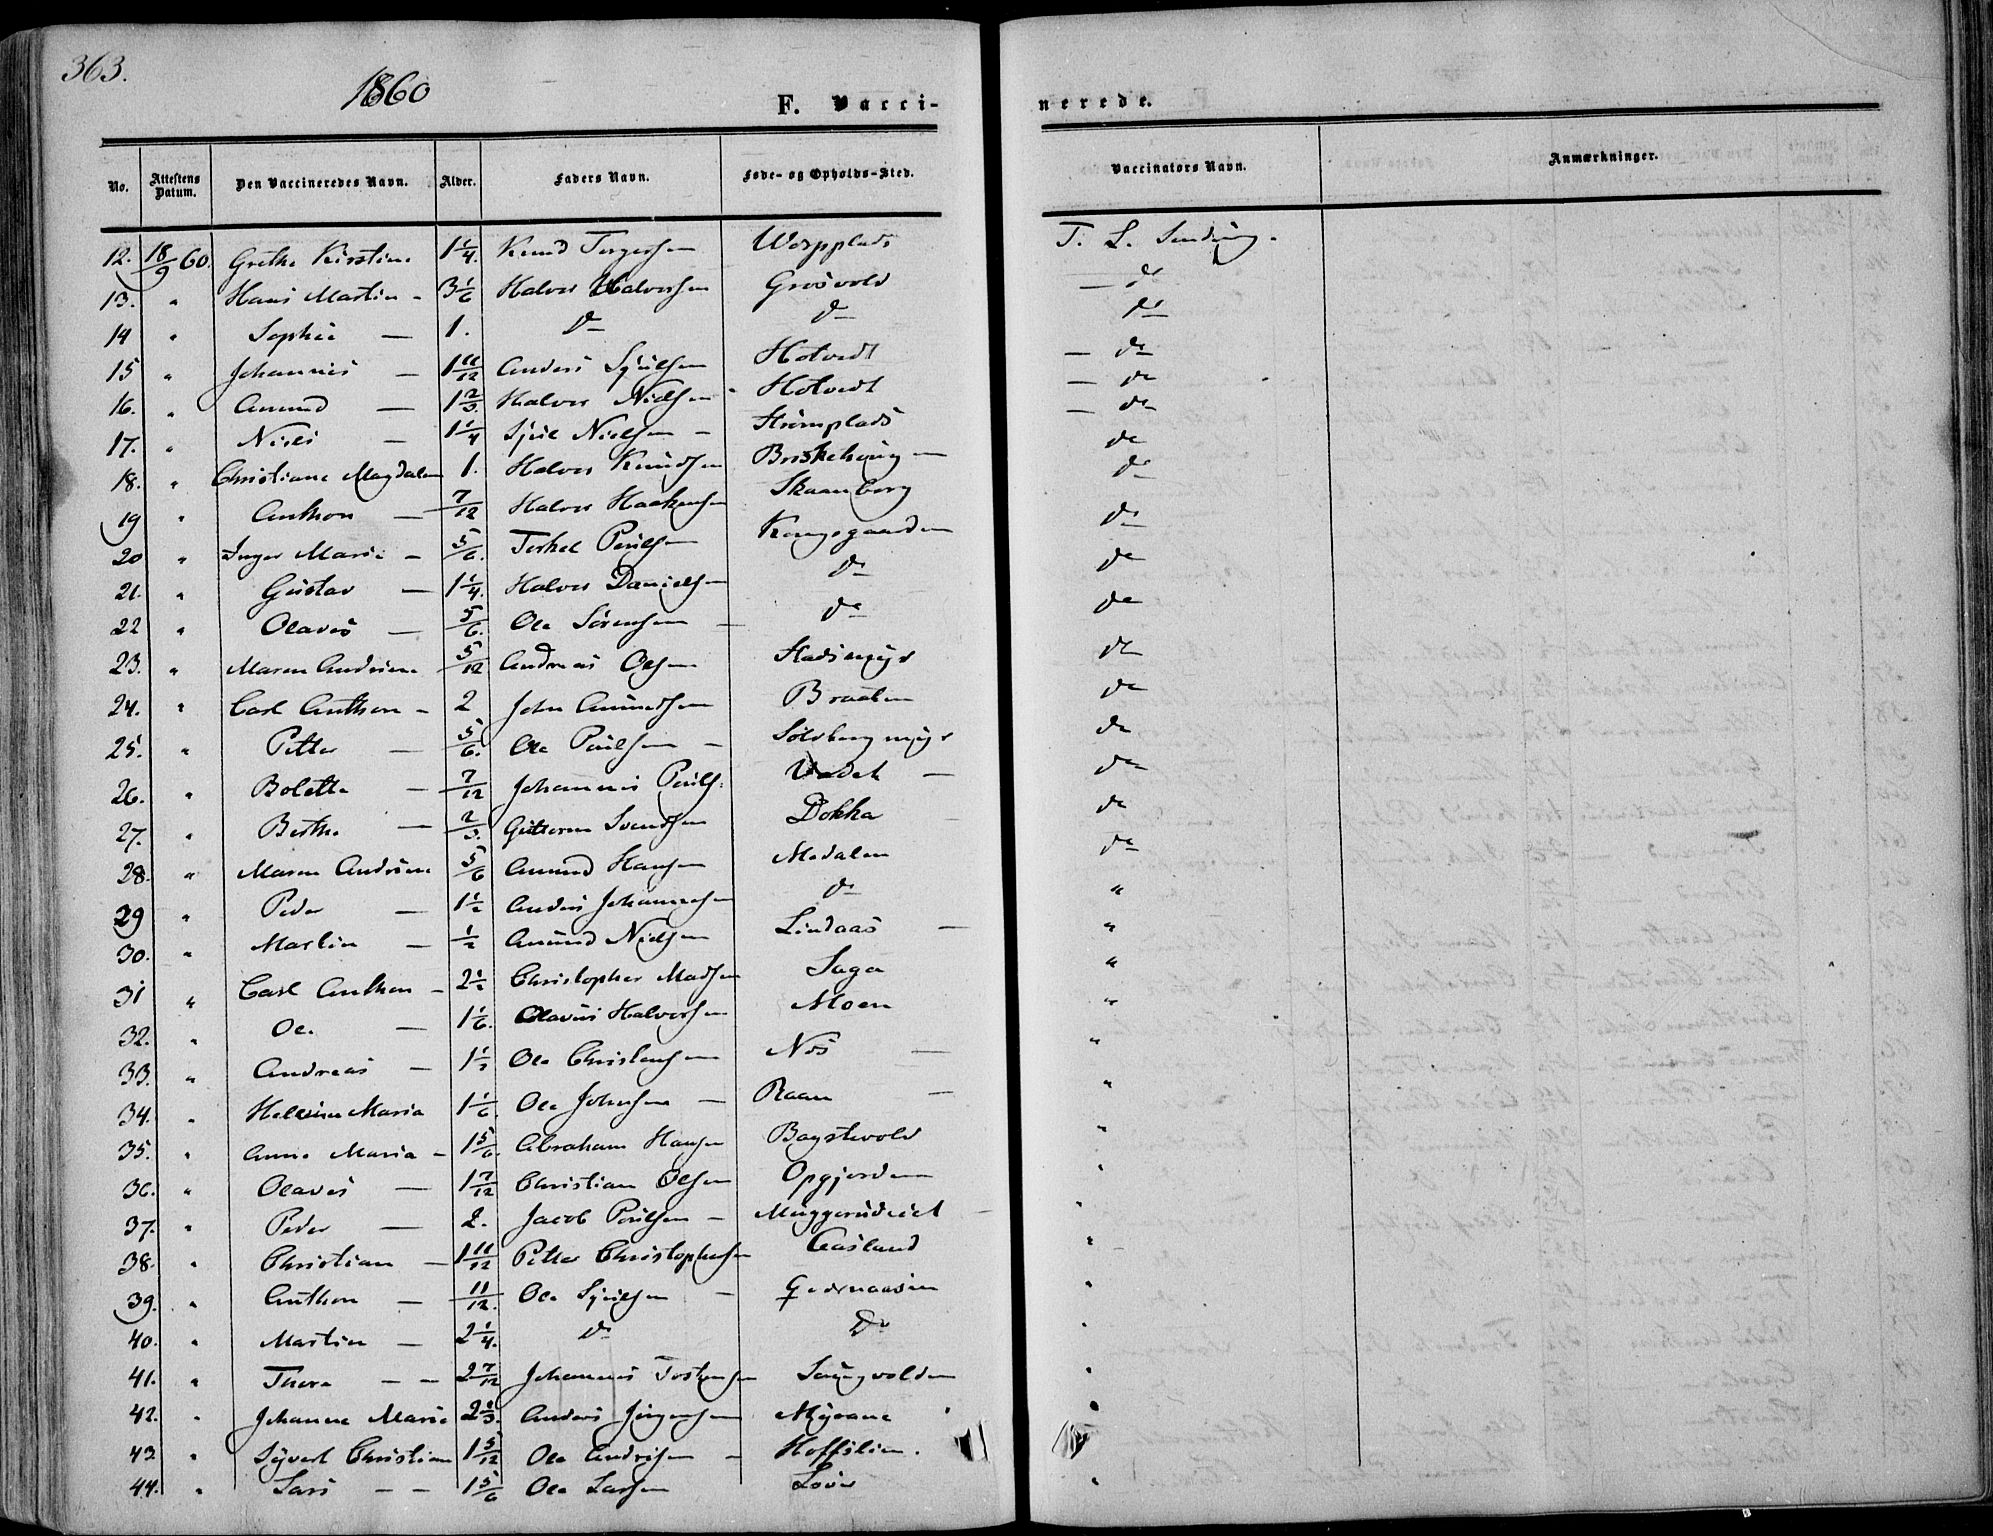 363.
1860
F. Vacci-
nerede.
No. Attestens Datum. Den Vaccineredes Navn. Alder. Faders Navn. Føde- og Opholds-Sted. Vaccinators Navn. Anmærkninger.
12. 18/9 60. Grethe Kirstine 1 1/4. Knud Tergersen T. L.
13. " Hans Martin - 3 1/6 Halvor Halvorsen Grosvold do
14 " Sophie — 1. do do do
15 " Johannes — 1 11/12 Anders Sjulsen Hotvedt — do
16. " Amund — 1 2/3. Halvor Nielsen Hotvedt — do
17. " Niels — 1 1/4 Sjul Nielsen — — do
18. " Christiane Magdalen 1. Halvor Knudsen do
19 " Anthon — 7/12 Halvor Haakensen Skaanberg do
20 " Inger Marie — 5/6. Terkel Poulsen Kongsgaarden do
21. " Gustav — 1 1/4. Halvor Danielsen do do
22 " Olaves — 5/6. Ole Sørensen — do do
23. " Maren Andrine 5/12 Andreas Olsen do
24. " Carl Anthon - 2 John Amundsen Braaten do
25. " Petter — 5/6. Ole Poulsen — Sølsbergmyr do
26. " Bolette — 7/12 Johannes Pouls: — do
27. " Berthe — 2/3. Guttorm Svendsen Dokka do
28. " Maren Andrine 5/6 Amund Hansen Medalen do
29 " Peder — 1 1/2 Anders Johannesen do "
30. " Martin — 1/2 Amund Nielsen Lindaas — "
31 " Carl Anthon - 2 1/2 Christopher Madsen Saga "
32. " Ole — 1 1/6. Olavus Halvorsen Moen "
33. " Andreas — 1 1/2 Ole Christensen — "
34. " Maria 1 1/6. Ole Johnsen — Raan — "
35. " Anne Maria - 1 5/6. Abraham Hansen "
36. " Olaves — 1 7/12 Christian Olsen Opgjorden "
37. " Peder — 2. Jacob Poulsen — Muggerudeiet "
38. " Christian — 1 11/12 Petter Christophersen Aasland "
39. " Anthon — 11/12. Ole Sjulsen — "
40. " Martin — 2 1/4. do Do "
41. " Thora — — 2 7/12 Johannes Torstensen "
42. " Johanne Marie 2 1/3. Anders Jørgensen Myrane "
43. " Syvert Christian 1 5/12 Ole Andersen —
44. " Lars — — 1 5/6 Ole Larsen "